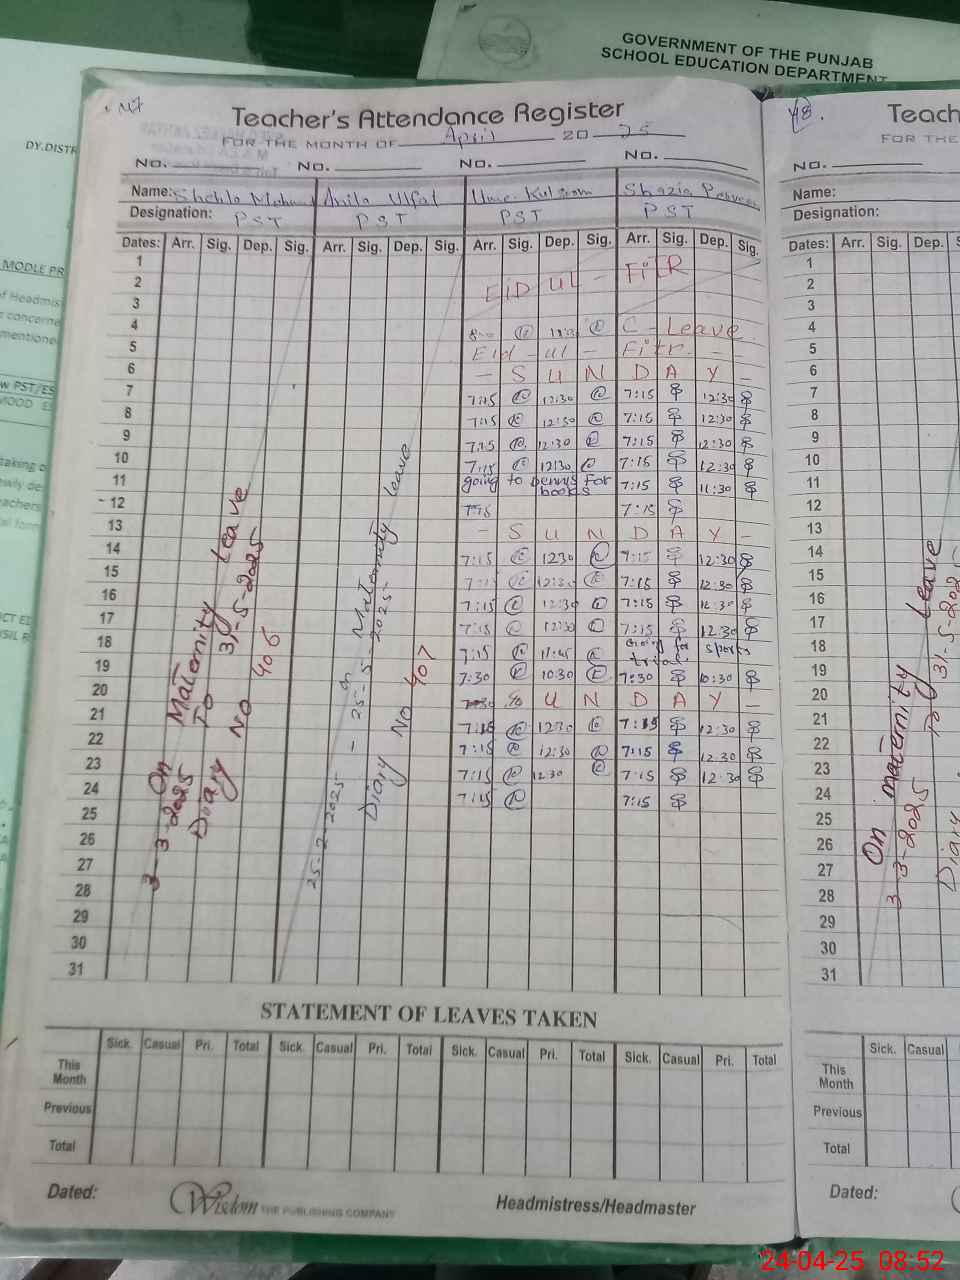 GOVERNMENT OF THE PUNJAB
SCHOOL EDUCATION DEPARTMENT
DY.DISTR
MODLE PR
of Headmis
concerne
mentione
w PST/ES
taking o
Teacher's Attendance Register
FOR THE MONTH OF April 20 25
NO. NO. NO. NO.
Name: Shehla Anila Ulfat Ume-Kulsoom Shazia Perveen
Designation: PST PST PST PST
Dates: Arr. Sig. Dep. Sig. Arr. Sig. Dep. Sig. Arr. Sig. Dep. Sig. Arr. Sig. Dep. Sig.
1
2 EID UL - FITR
3
4 C - Leave
5 Eid - ul - Fitr - -
6 - S U N D A Y -
7 7:15 12:30 7:15 12:30
8 7:15 12:30 7:15 12:30
9 7:15 12:30 7:15 12:30
10 7:15 12:30 7:15 12:30
11 going to for books 7:15 11:30
12 7:15 7:15
13 - S U N D A Y -
14 7:15 1230 7:15 12:30
15 7:15 12:30 7:15 12:30
16 7:15 12:30 7:15 12:30
17 7:15 12:30 7:15 12:30
18 7:15 11:45 Going for sports trial
19 7:30 10:30 7:30 10:30
20 U N D A Y -
21 7:15 12:30 7:15 12:30
22 7:15 12:30 7:15 12:30
23 7:15 12:30 7:15 12:30
24 7:15 7:15
25
26
27
28
29
30
31
On Maternity Leave
3-3-2025 To 31-5-2025
Diary NO 406
On Maternity leave
25-2-2025 - 25-5-2025
Diary NO 407
STATEMENT OF LEAVES TAKEN
Sick. Casual Pri. Total Sick. Casual Pri. Total Sick. Casual Pri. Total Sick. Casual Pri. Total
This Month
Previous
Total
Dated:
Wisdom THE PUBLISHING COMPANY
Headmistress/Headmaster
48.
Teach
FOR THE
NO.
Name:
Designation:
Dates: Arr. Sig. Dep.
1
2
3
4
5
6
7
8
9
10
11
12
13
14
15
16
17
18
19
20
21
22
23
24
25
26
27
28
29
30
31
On maternity Leave
3-3-2025 To 31-5-202
Diary
Sick. Casual
This Month
Previous
Total
Dated:
24-04-25 08:52